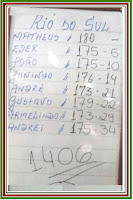 RIO DO SUL
MATHEUS // 180 —
EDER // 175-5
JOÃO // 175-10
JUNINHO // 176-14
ANDRÉ // 173-21
GUSTAVO // 179-22
ARMELINDO // 173-29
ANDREI // 175-34
1406